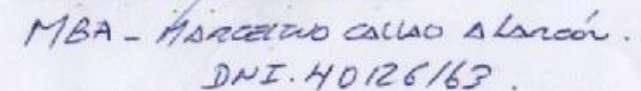 MBA - MARCELINO CALLAO ALARCÓN.
DNI. 40126163.